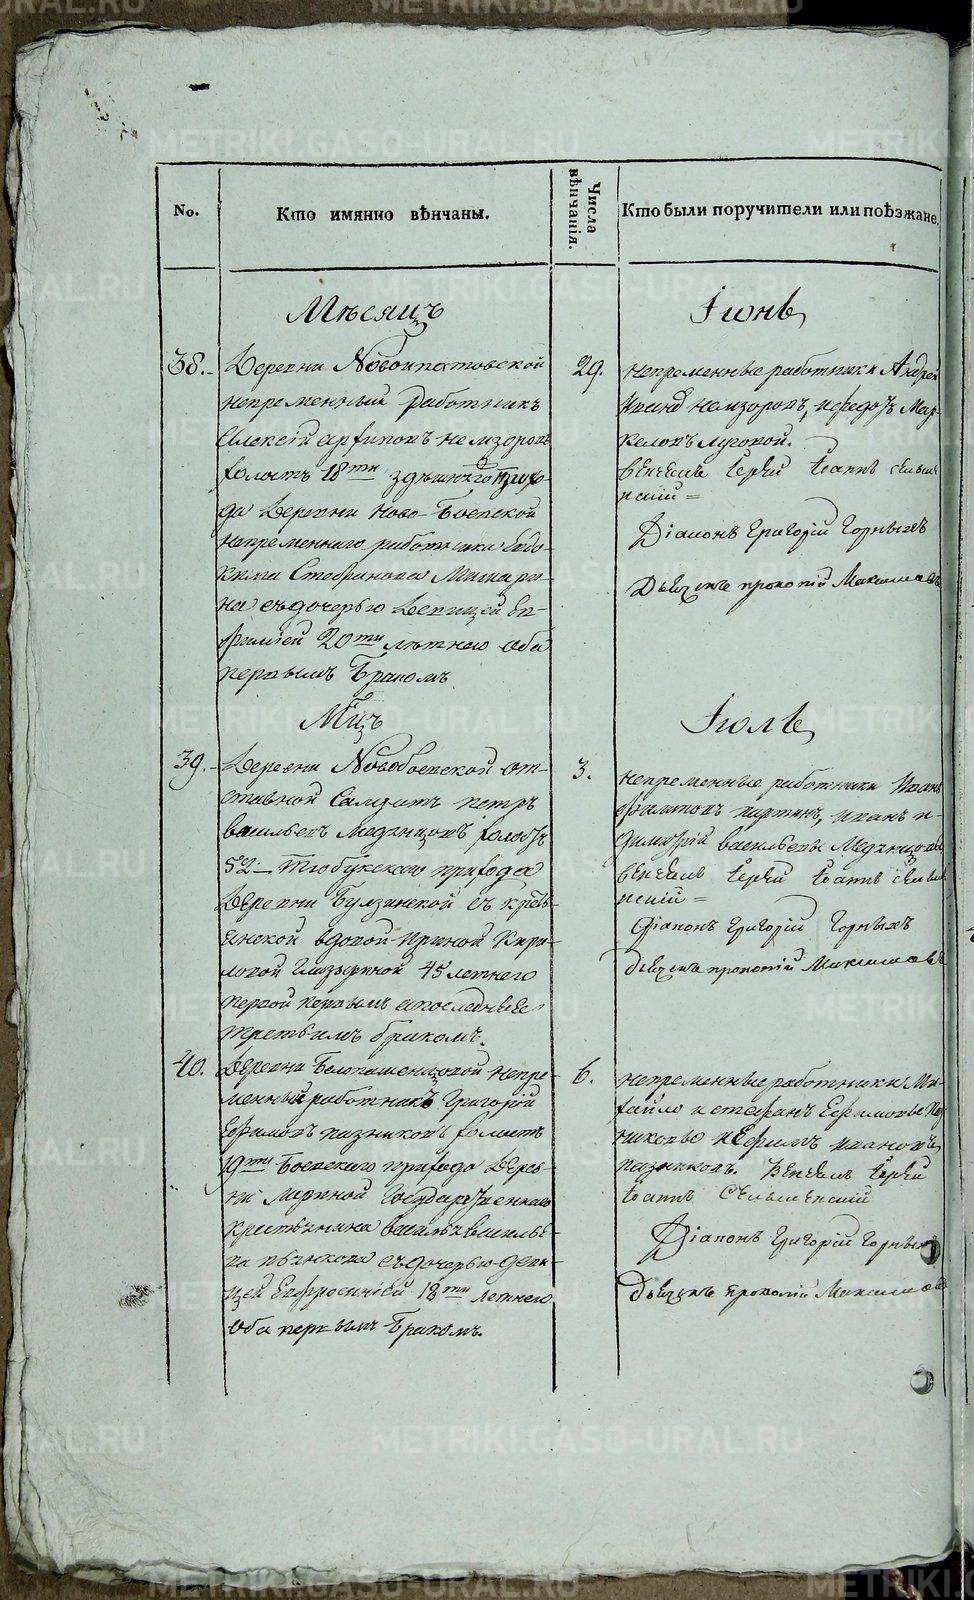 No.
Кто имянно вѣнчаны.
Числа вѣнчанія.
Кто были поручители или поѣзжане.
Мѣсяцъ
Іюнь
38.
Деревни Новоипатовской
непременный работникъ
Алексѣй архиповъ
холостъ 18ти здешняго прихо-
да Деревни Ново-Боевской
непременнаго работника Евдо-
кима Стефанова
на съ дочерью Девицей Ев-
фимией 20ти лѣтнею оба
первымъ Бракомъ
29.
непременные работники Андрей
Мар-
келовъ луговой.
венчалъ Іерей Іоаннъ
Діаконъ Григорій Горныхъ
Дьячекъ прокопій Максимовъ
Мцъ
Іюль
39.
Деревни Новобоевской от-
ставной Салдатъ петръ
васильевъ Медянцовъ холостъ
52 Тюбукскаго прихода
Деревни Булзинской съ кресть-
янской вдовой Ириной Кири-
ловой 45 летнего
первой первымъ а последнее
третьимъ бракомъ.
3.
непременные работники Иванъ
Филатовъ паргинъ, иванъ и
Димитрій васильевы Медянцовы
венчалъ Іерей Іоаннъ
Діаконъ Григорій Горныхъ
дьячекъ прокопій Максимовъ
40.
Деревни Белопашенцовой непре-
менный работникъ Григорій
Ефимовъ пазниковъ холостъ
19ти Боевскаго прихода Дерев-
ни Государственнаго
крестьянина василья василье-
ва съ дочерью деви-
цей Евфросиніей 18ти летнею
оба первымъ Бракомъ.
6.
непременные работники Ми-
хайло и стефанъ Ефимовы Паз-
никовы и Ефимъ ивановъ
пазниковъ. Венчалъ Іерей
Іоаннъ
Діаконъ Григорій Горныхъ
Дьячекъ прокопій Максимовъ
METRIKI.GASO-URAL.RU